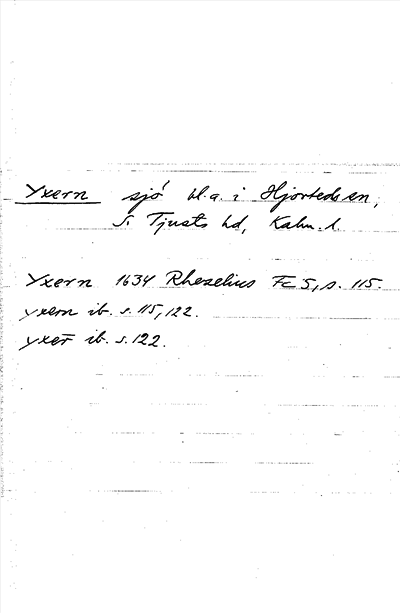 Yxern sjö bl.a. i Hjorteds sn,
S. Tjusts hd, Kalm. l.
Yxern 1634 Rhezelius Fc 5, s. 115.
yxern ib. s. 115, 122.
yxer̄ ib. s. 122.